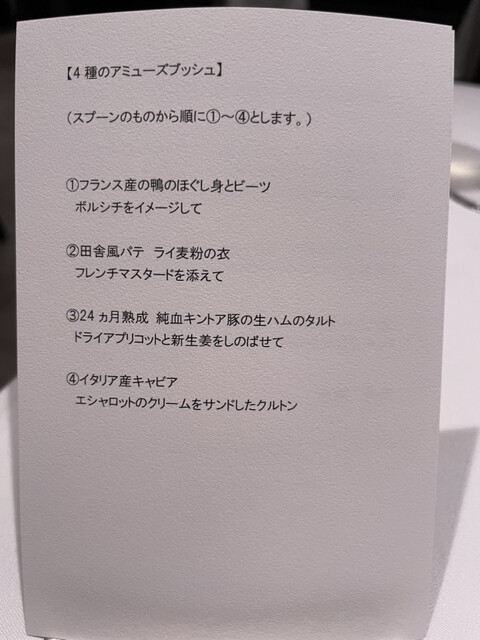 【4 種のアミューズブッシュ】
（スプーンのものから順に①～④とします。）
①フランス産の鴨のほぐし身とビーツ
ボルシチをイメージして
②田舎風パテ　ライ麦粉の衣
フレンチマスタードを添えて
③24 ヵ月熟成 純血キントア豚の生ハムのタルト
ドライアプリコットと新生姜をしのばせて
④イタリア産キャビア
エシャロットのクリームをサンドしたクルトン